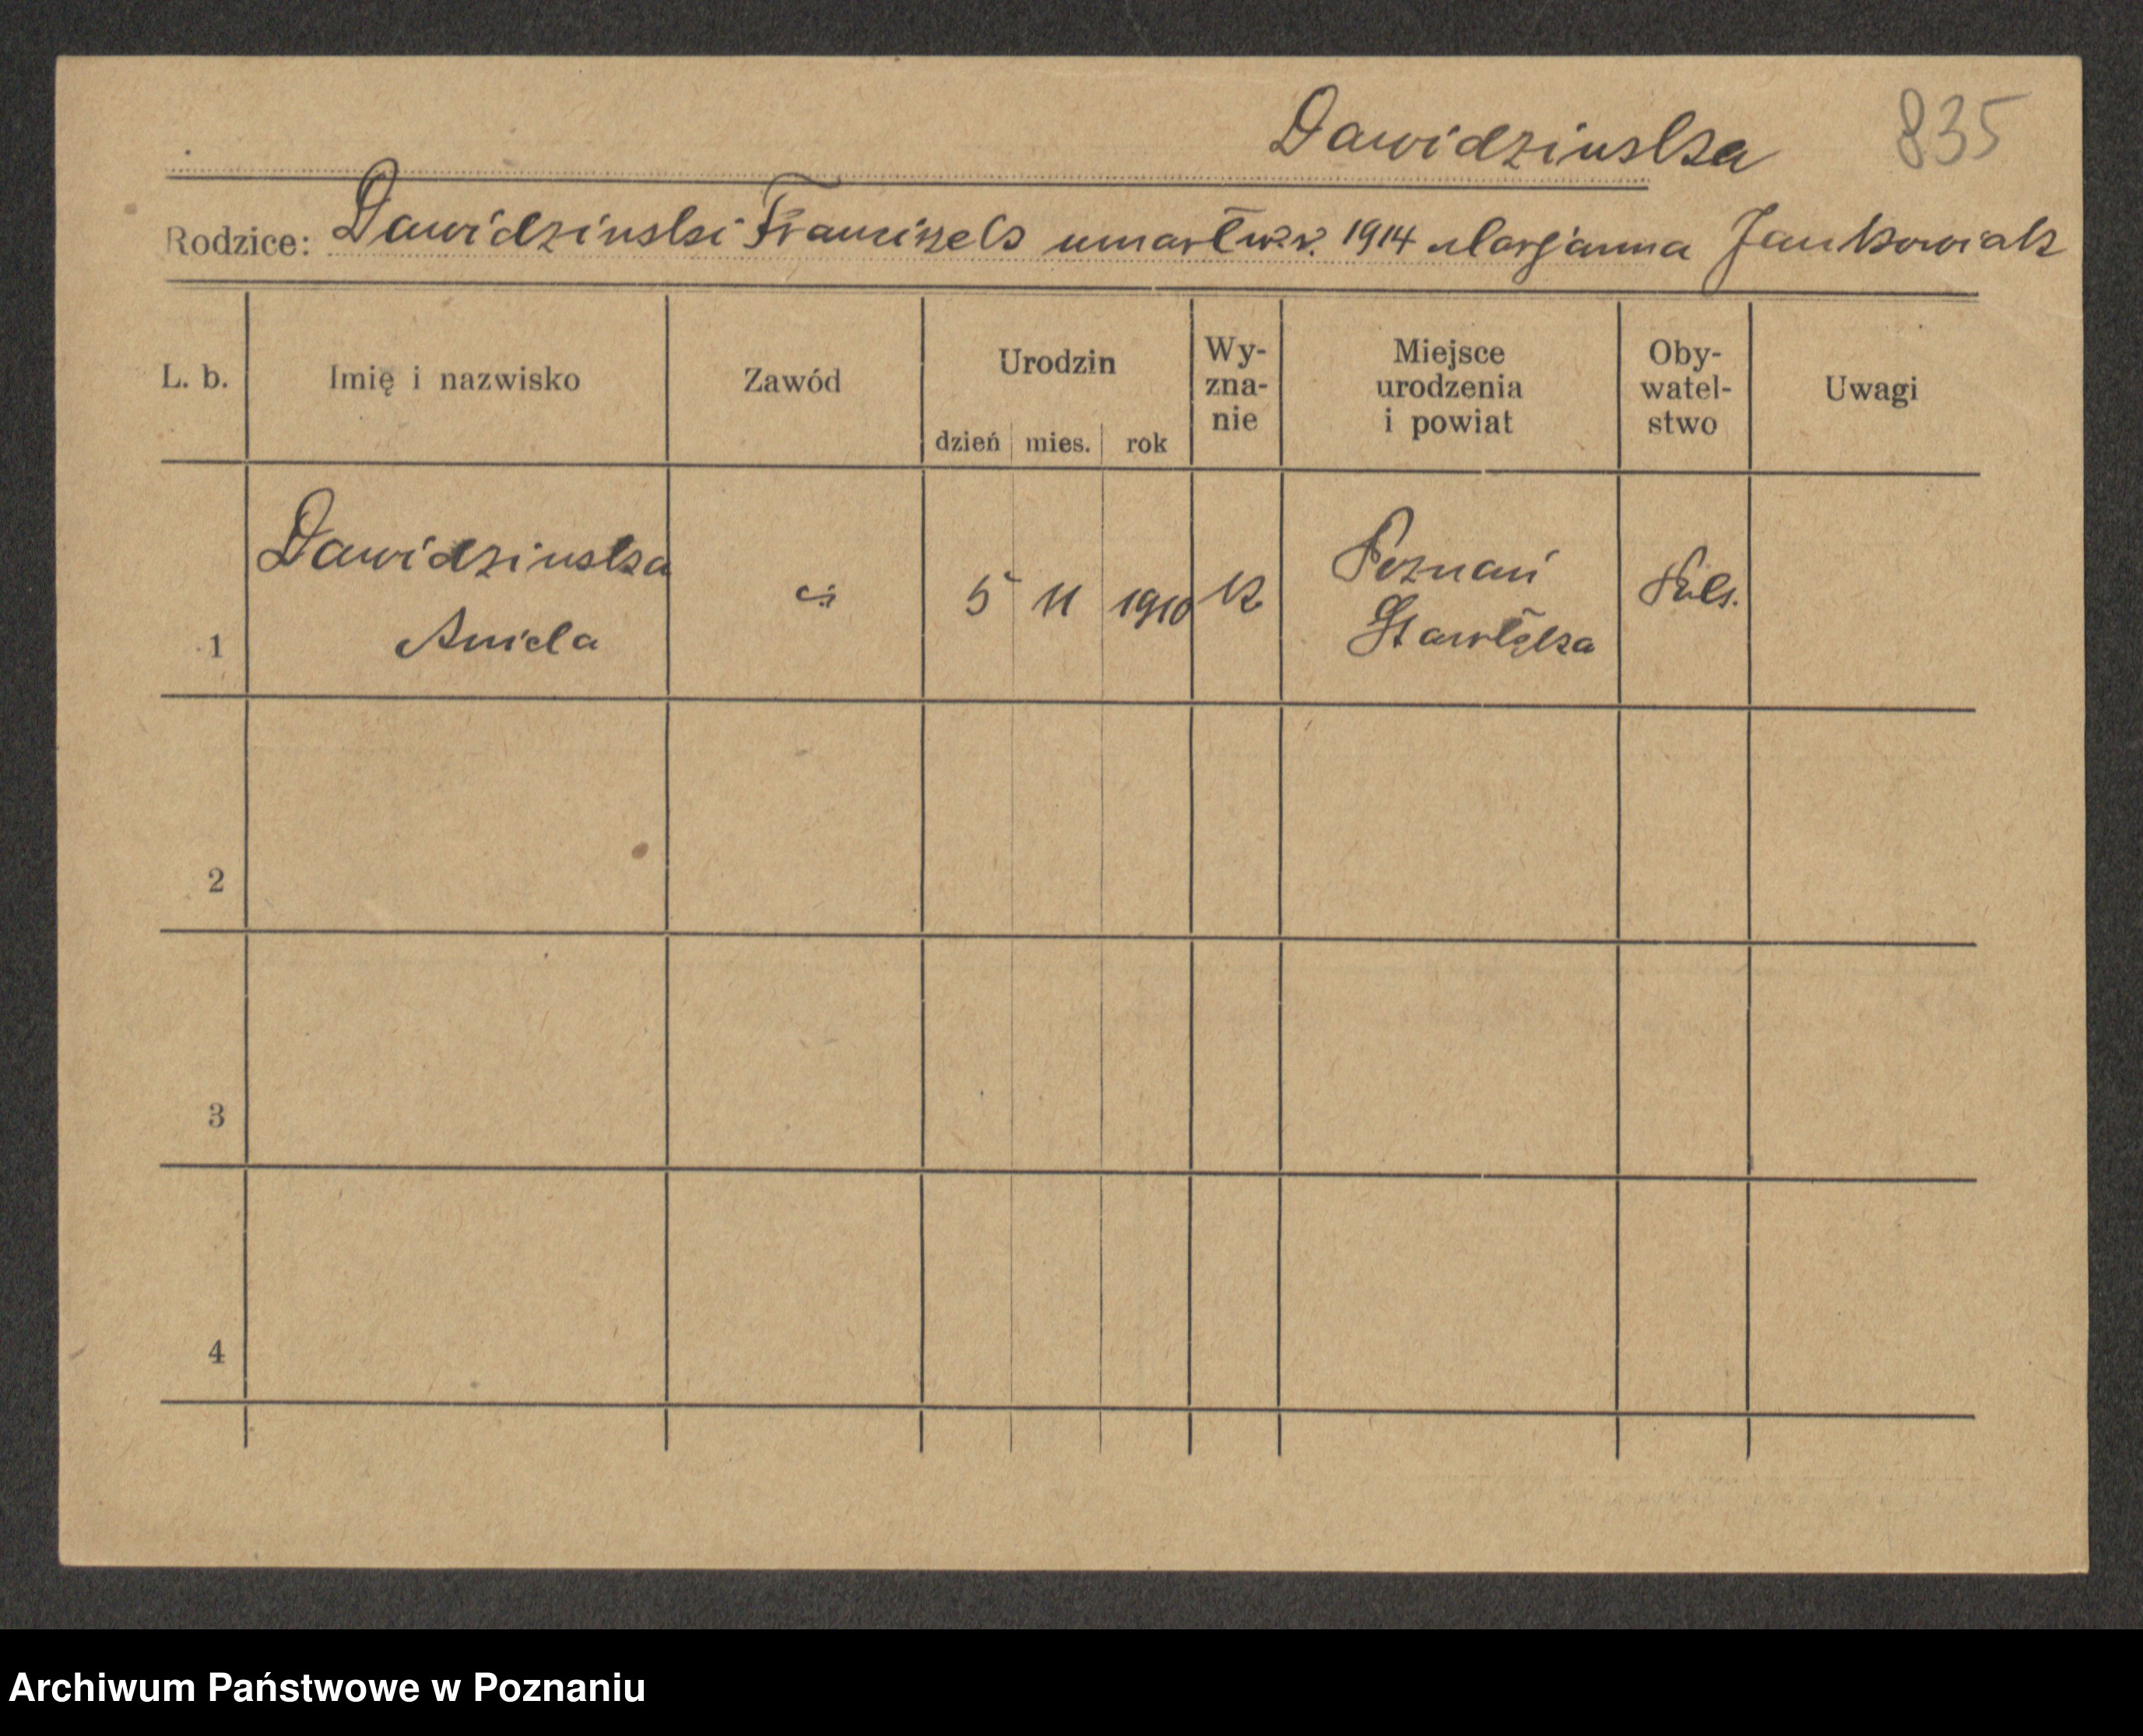 Dawidzinska 835
Rodzice: Dawidzinski Franciszek umarł w r. 1914 Marjanna Jankowiak
L. b. Imię i nazwisko Zawód Urodzin dzień mies. rok Wy-zna-nie Miejsce urodzenia i powiat Oby-watel-stwo Uwagi
Dawidzinska Poznań
1 Aniela 5 11 1910 k Starołęka
2
3
4
Archiwum Państwowe w Poznaniu